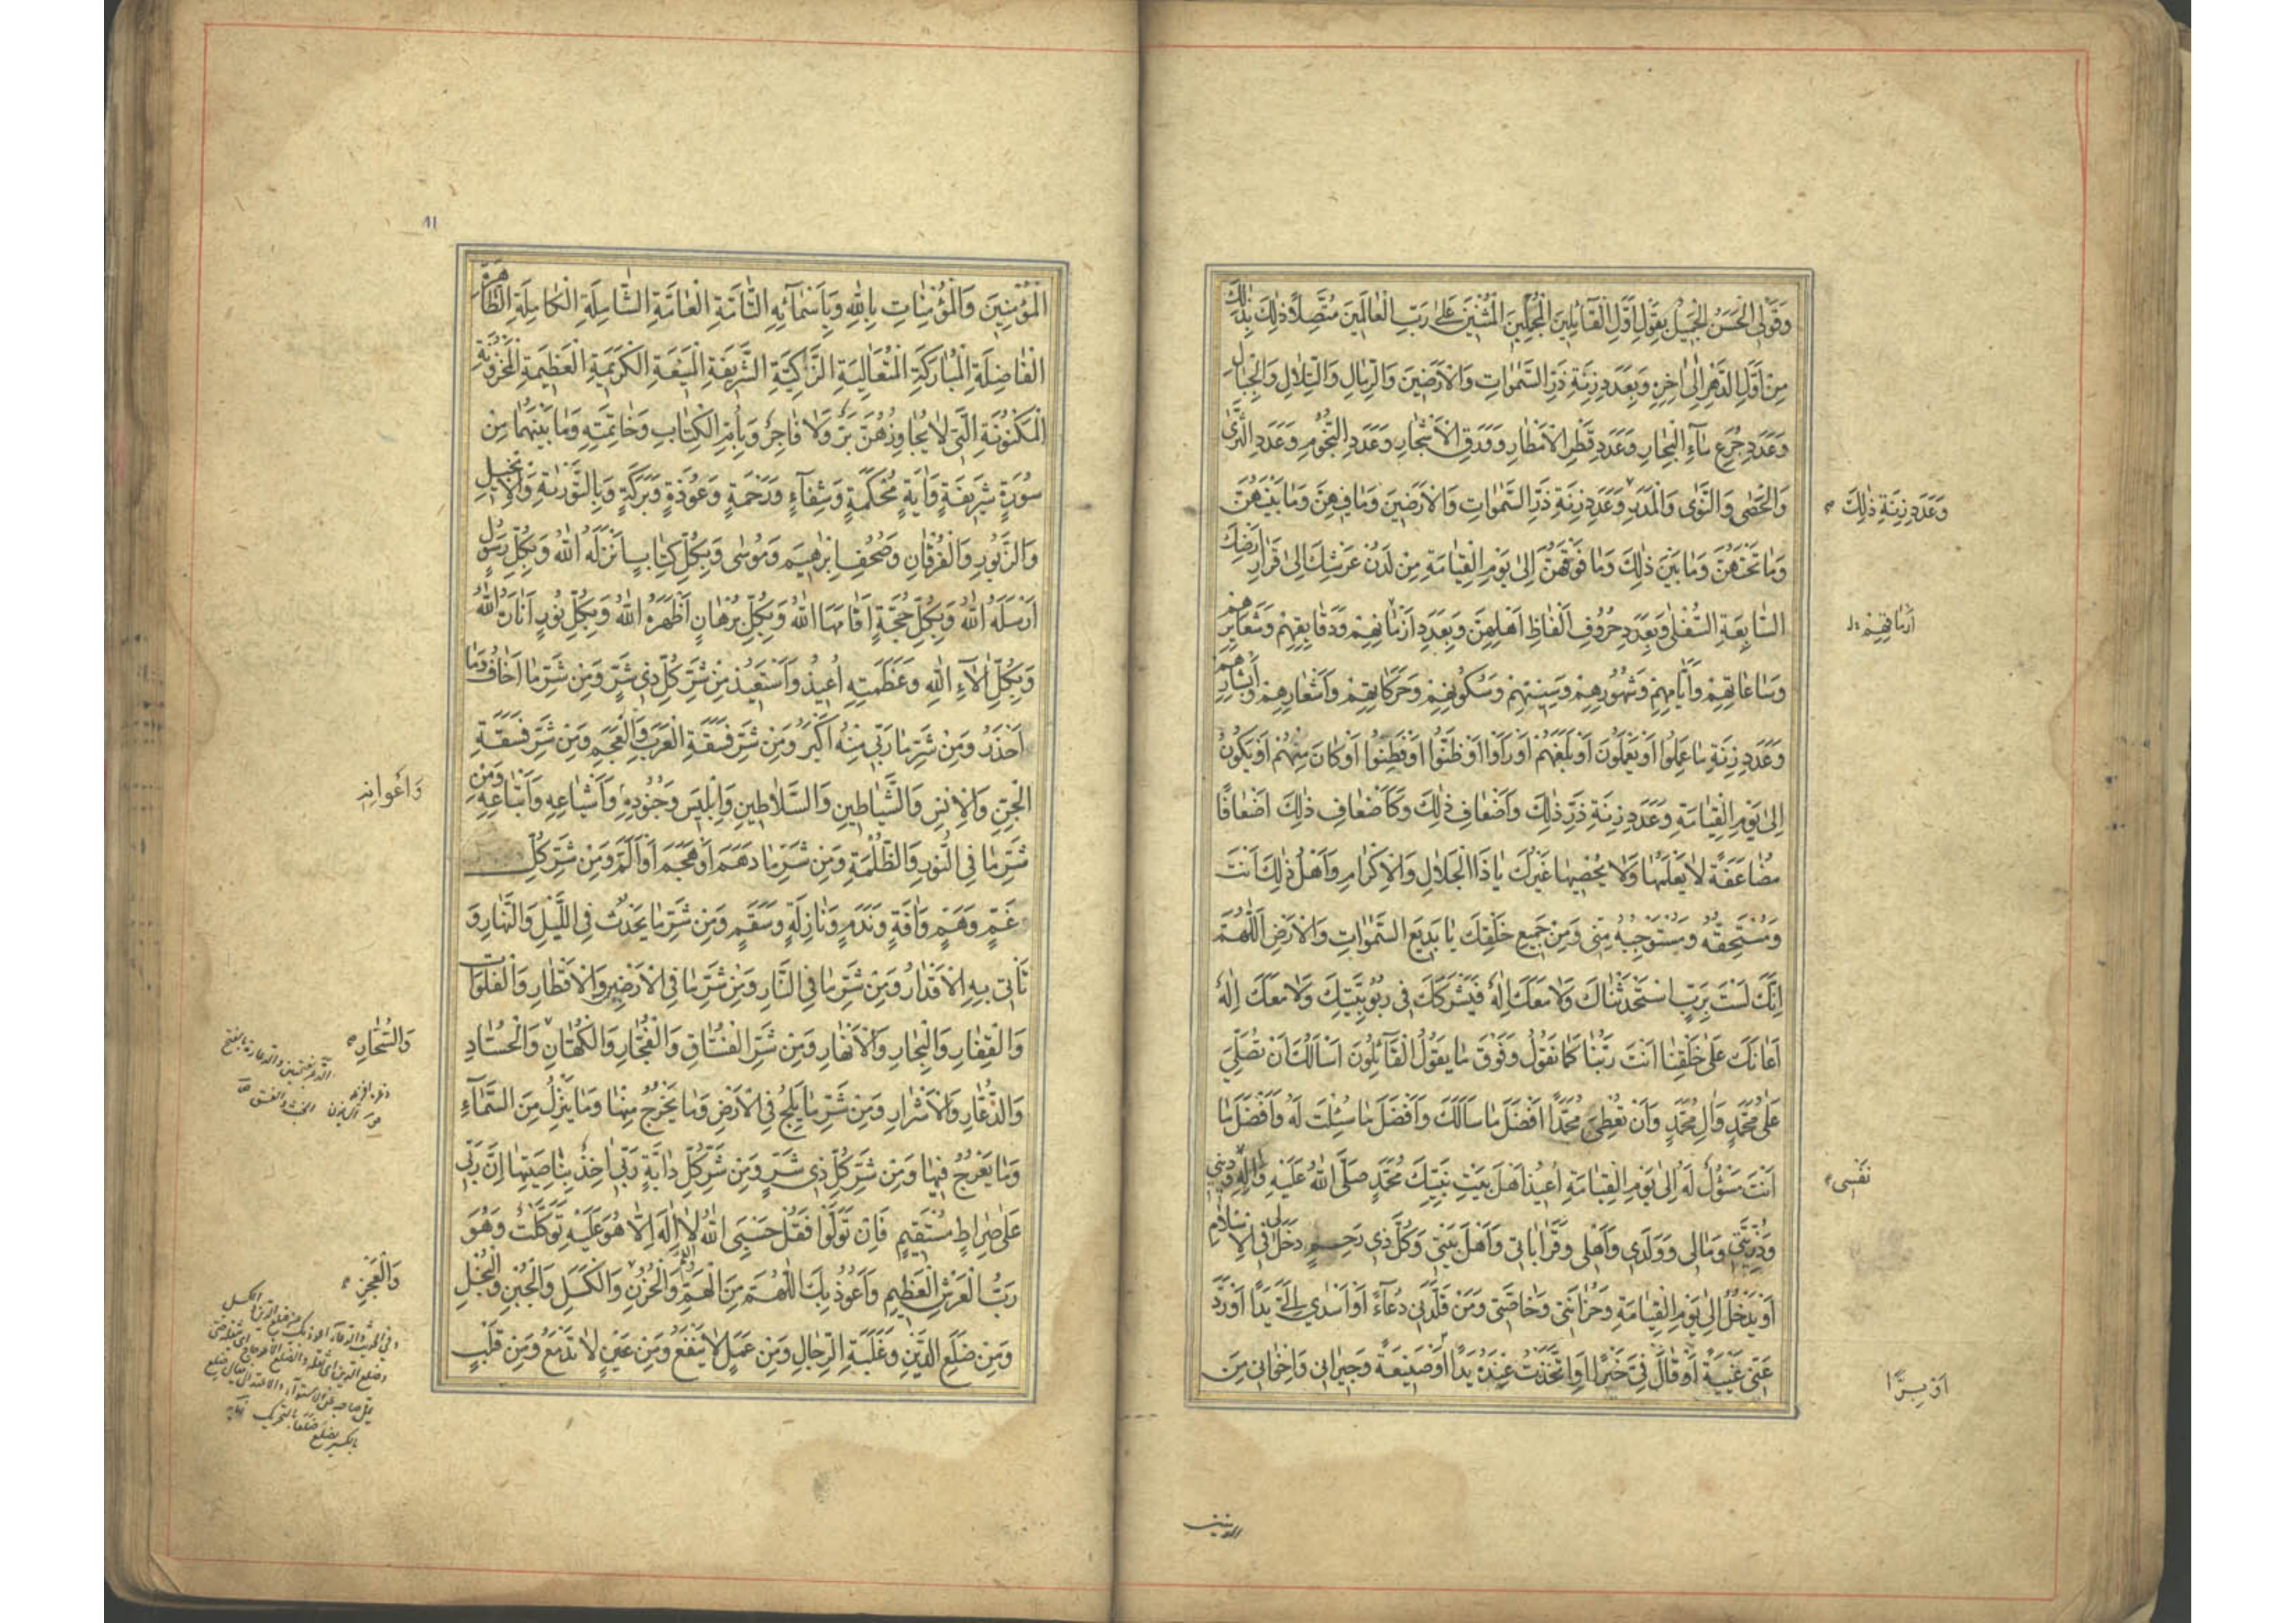 وَقَوْلِيَ الْحَسَنَ الْجَمِيلَ بِقَوْلِ اَوَّلِ الْقَآئِلِينَ الْمُجْمِلِينَ الْمُثْنِينَ عَلٰى رَبِّ الْعَالَمِينَ مُتَّصِلًا ذٰلِكَ بِذٰلِكَ
مِنْ اَوَّلِ الدَّهْرِ اِلٰى اٰخِرِهِ وَبِعَدَدِ زِنَةِ ذَرِّ السَّمٰوَاتِ وَالْاَرَضِينَ وَالرِّمَالِ وَالتِّلَالِ وَالْجِبَالِ
وَعَدَدِ جُرَعِ مَآءِ الْبِحَارِ وَعَدَدِ قَطْرِ الْاَمْطَارِ وَوَرَقِ الْاَشْجَارِ وَعَدَدِ النُّجُومِ وَعَدَدِ الثَّرٰى
وَالْحَصٰى وَالنَّوٰى وَالْمَدَرِ وَعَدَدِ زِنَةِ ذَرِّ السَّمٰوَاتِ وَالْاَرَضِينَ وَمَا فِيهِنَّ وَمَا بَيْنَهُنَّ
وَعَدَدِ زِنَةِ ذٰلِكَ
وَمَا تَحْتَهُنَّ وَمَا بَيْنَ ذٰلِكَ وَمَا فَوْقَهُنَّ اِلٰى يَوْمِ الْقِيَامَةِ مِنْ لَدُنْ عَرْشِكَ اِلٰى قَرَارِ اَرْضِكَ
السَّابِعَةِ السُّفْلٰى وَبِعَدَدِ حُرُوفِ اَلْفَاظِ اَهْلِهِنَّ وَبِعَدَدِ اَزْمَانِهِمْ وَدَقَايِقِهِمْ وَشَعَايِرِهِمْ
وَسَاعَاتِهِمْ وَاَيَّامِهِمْ وَشُهُورِهِمْ وَسِنِينِهِمْ وَسُكُونِهِمْ وَحَرَكَاتِهِمْ وَاَشْعَارِهِمْ وَاَبْشَارِهِمْ
وَعَدَدِ زِنَةِ مَا عَمِلُوا اَوْ يَعْمَلُونَ اَوْ بَلَغَهُمْ اَوْ رَاَوْا اَوْ ظَنُّوا اَوْ فَطِنُوا اَوْ كَانَ مِنْهُمْ اَوْ يَكُونُ
اِلٰى يَوْمِ الْقِيَامَةِ وَعَدَدِ زِنَةِ ذَرِّ ذٰلِكَ وَاَضْعَافِ ذٰلِكَ وَكَاَضْعَافِ ذٰلِكَ اَضْعَافًا
مُضَاعَفَةً لَا يَعْلَمُهَا وَلَا يُحْصِيهَا غَيْرُكَ يَا ذَا الْجَلَالِ وَالْاِكْرَامِ وَاَهْلُ ذٰلِكَ اَنْتَ
وَمُسْتَحِقُّهُ وَمُسْتَوْجِبُهُ مِنِّي وَمِنْ جَمِيعِ خَلْقِكَ يَا بَدِيعَ السَّمٰوَاتِ وَالْاَرْضِ اَللّٰهُمَّ
اِنَّكَ لَسْتَ بِرَبٍّ اسْتَحْدَثْنَاكَ وَلَا مَعَكَ اِلٰهٌ فَيَشْرَكَكَ فِي رُبُوبِيَّتِكَ وَلَا مَعَكَ اِلٰهٌ
اَعَانَكَ عَلٰى خَلْقِنَا اَنْتَ رَبُّنَا كَمَا نَقُولُ وَفَوْقَ مَا يَقُولُ الْقَآئِلُونَ اَسْاَلُكَ اَنْ تُصَلِّيَ
عَلٰى مُحَمَّدٍ وَاٰلِ مُحَمَّدٍ وَاَنْ تُعْطِيَ مُحَمَّدًا اَفْضَلَ مَا سَاَلَكَ وَاَفْضَلَ مَا سُئِلْتَ لَهُ وَاَفْضَلَ مَا
اَنْتَ مَسْؤُلٌ لَهُ اِلٰى يَوْمِ الْقِيَامَةِ اُعِيذُ اَهْلَ بَيْتِ نَبِيِّكَ مُحَمَّدٍ صَلَّى اللهُ عَلَيْهِ وَاٰلِهِ وَدِينِي
نَفْسِي
وَذُرِّيَّتِي وَمَالِي وَوَلَدِي وَاَهْلِي وَقَرَابَاتِي وَاَهْلَ بَيْتِي وَكُلَّ ذِي رَحِمٍ دَخَلَ لِي فِي الْاِسْلَامِ
اَوْ يَدْخُلُ اِلٰى يَوْمِ الْقِيَامَةِ وَحُزَانَتِي وَخَاصَّتِي وَمَنْ قَلَّدَنِي دُعَآءً اَوْ اَسْدٰى اِلَيَّ يَدًا اَوْ رَدَّ
عَنِّي غَيْبَةً اَوْ قَالَ فِيَّ خَيْرًا اَوِ اتَّخَذْتُ عِنْدَهُ يَدًا اَوْ صَنِيعَةً وَجِيرَانِي وَاِخْوَانِي مِنَ
اَوْ بِرًّا
المؤمنين
٨١
الْمُؤْمِنِينَ وَالْمُؤْمِنَاتِ بِاللهِ وَبِاَسْمَآئِهِ التَّآمَّةِ الْعَامَّةِ الشَّامِلَةِ الْكَامِلَةِ الطَّاهِرَةِ
الْفَاضِلَةِ الْمُبَارَكَةِ الْمُتَعَالِيَةِ الزَّاكِيَةِ الشَّرِيفَةِ الْمَنِيعَةِ الْكَرِيمَةِ الْعَظِيمَةِ الْمَخْزُونَةِ
الْمَكْنُونَةِ الَّتِي لَا يُجَاوِزُهُنَّ بَرٌّ وَلَا فَاجِرٌ وَبِاُمِّ الْكِتَابِ وَخَاتِمَتِهِ وَمَا بَيْنَهُمَا مِنْ
سُورَةٍ شَرِيفَةٍ وَاٰيَةٍ مُحْكَمَةٍ وَشِفَآءٍ وَرَحْمَةٍ وَعُوذَةٍ وَبَرَكَةٍ وَبِالتَّوْرٰيةِ وَالْاِنْجِيلِ
وَالزَّبُورِ وَالْفُرْقَانِ وَصُحُفِ اِبْرٰهِيمَ وَمُوسٰى وَبِكُلِّ كِتَابٍ اَنْزَلَهُ اللهُ وَبِكُلِّ رَسُولٍ
اَرْسَلَهُ اللهُ وَبِكُلِّ حُجَّةٍ اَقَامَهَا اللهُ وَبِكُلِّ بُرْهَانٍ اَظْهَرَهُ اللهُ وَبِكُلِّ نُورٍ اَنَارَهُ اللهُ
وَبِكُلِّ اٰلَآءِ اللهِ وَعَظَمَتِهِ اُعِيذُ وَاَسْتَعِيذُ مِنْ شَرِّ كُلِّ ذِي شَرٍّ وَمِنْ شَرِّ مَا اَخَافُ وَمَا
اَحْذَرُ وَمِنْ شَرِّ مَا رَبِّي مِنْهُ اَكْبَرُ وَمِنْ شَرِّ فَسَقَةِ الْعَرَبِ وَالْعَجَمِ وَمِنْ شَرِّ فَسَقَةِ
الْجِنِّ وَالْاِنْسِ وَالشَّيَاطِينِ وَالسَّلَاطِينِ وَاِبْلِيسَ وَجُنُودِهِ وَاَشْيَاعِهِ وَاَتْبَاعِهِ وَمِنْ
وَاَعْوَانِهِ
شَرِّ مَا فِي النُّورِ وَالظُّلْمَةِ وَمِنْ شَرِّ مَا دَهَمَ اَوْ هَجَمَ اَوْ اَلَمَّ وَمِنْ شَرِّ كُلِّ
غَمٍّ وَهَمٍّ وَاٰفَةٍ وَنَدَمٍ وَنَازِلَةٍ وَسَقَمٍ وَمِنْ شَرِّ مَا يَحْدُثُ فِي اللَّيْلِ وَالنَّهَارِ وَ
تَاْتِي بِهِ الْاَقْدَارُ وَمِنْ شَرِّ مَا فِي النَّارِ وَمِنْ شَرِّ مَا فِي الْاَرَضِينَ وَالْاَقْطَارِ وَالْفَلَوَاتِ
وَالْقِفَارِ وَالْبِحَارِ وَالْاَنْهَارِ وَمِنْ شَرِّ الْفُسَّاقِ وَالْفُجَّارِ وَالْكُهَّانِ وَالْحُسَّادِ
وَالسُّحَّارِ
وَالذُّعَّارِ وَالْاَشْرَارِ وَمِنْ شَرِّ مَا يَلِجُ فِي الْاَرْضِ وَمَا يَخْرُجُ مِنْهَا وَمَا يَنْزِلُ مِنَ السَّمَآءِ
وَمَا يَعْرُجُ فِيهَا وَمِنْ شَرِّ كُلِّ ذِي شَرٍّ وَمِنْ شَرِّ كُلِّ دَابَّةٍ رَبِّي اٰخِذٌ بِنَاصِيَتِهَا اِنَّ رَبِّي
عَلٰى صِرَاطٍ مُسْتَقِيمٍ فَاِنْ تَوَلَّوْا فَقُلْ حَسْبِيَ اللهُ لَا اِلٰهَ اِلَّا هُوَ عَلَيْهِ تَوَكَّلْتُ وَهُوَ
رَبُّ الْعَرْشِ الْعَظِيمِ وَاَعُوذُ بِكَ اللّٰهُمَّ مِنَ الْهَمِّ وَالْحُزْنِ وَالْكَسَلِ وَالْجُبْنِ وَالْبُخْلِ
وَالْعَجْزِ
وَمِنْ ضَلَعِ الدَّيْنِ وَغَلَبَةِ الرِّجَالِ وَمِنْ عَمَلٍ لَا يَنْفَعُ وَمِنْ عَيْنٍ لَا تَدْمَعُ وَمِنْ قَلْبٍ